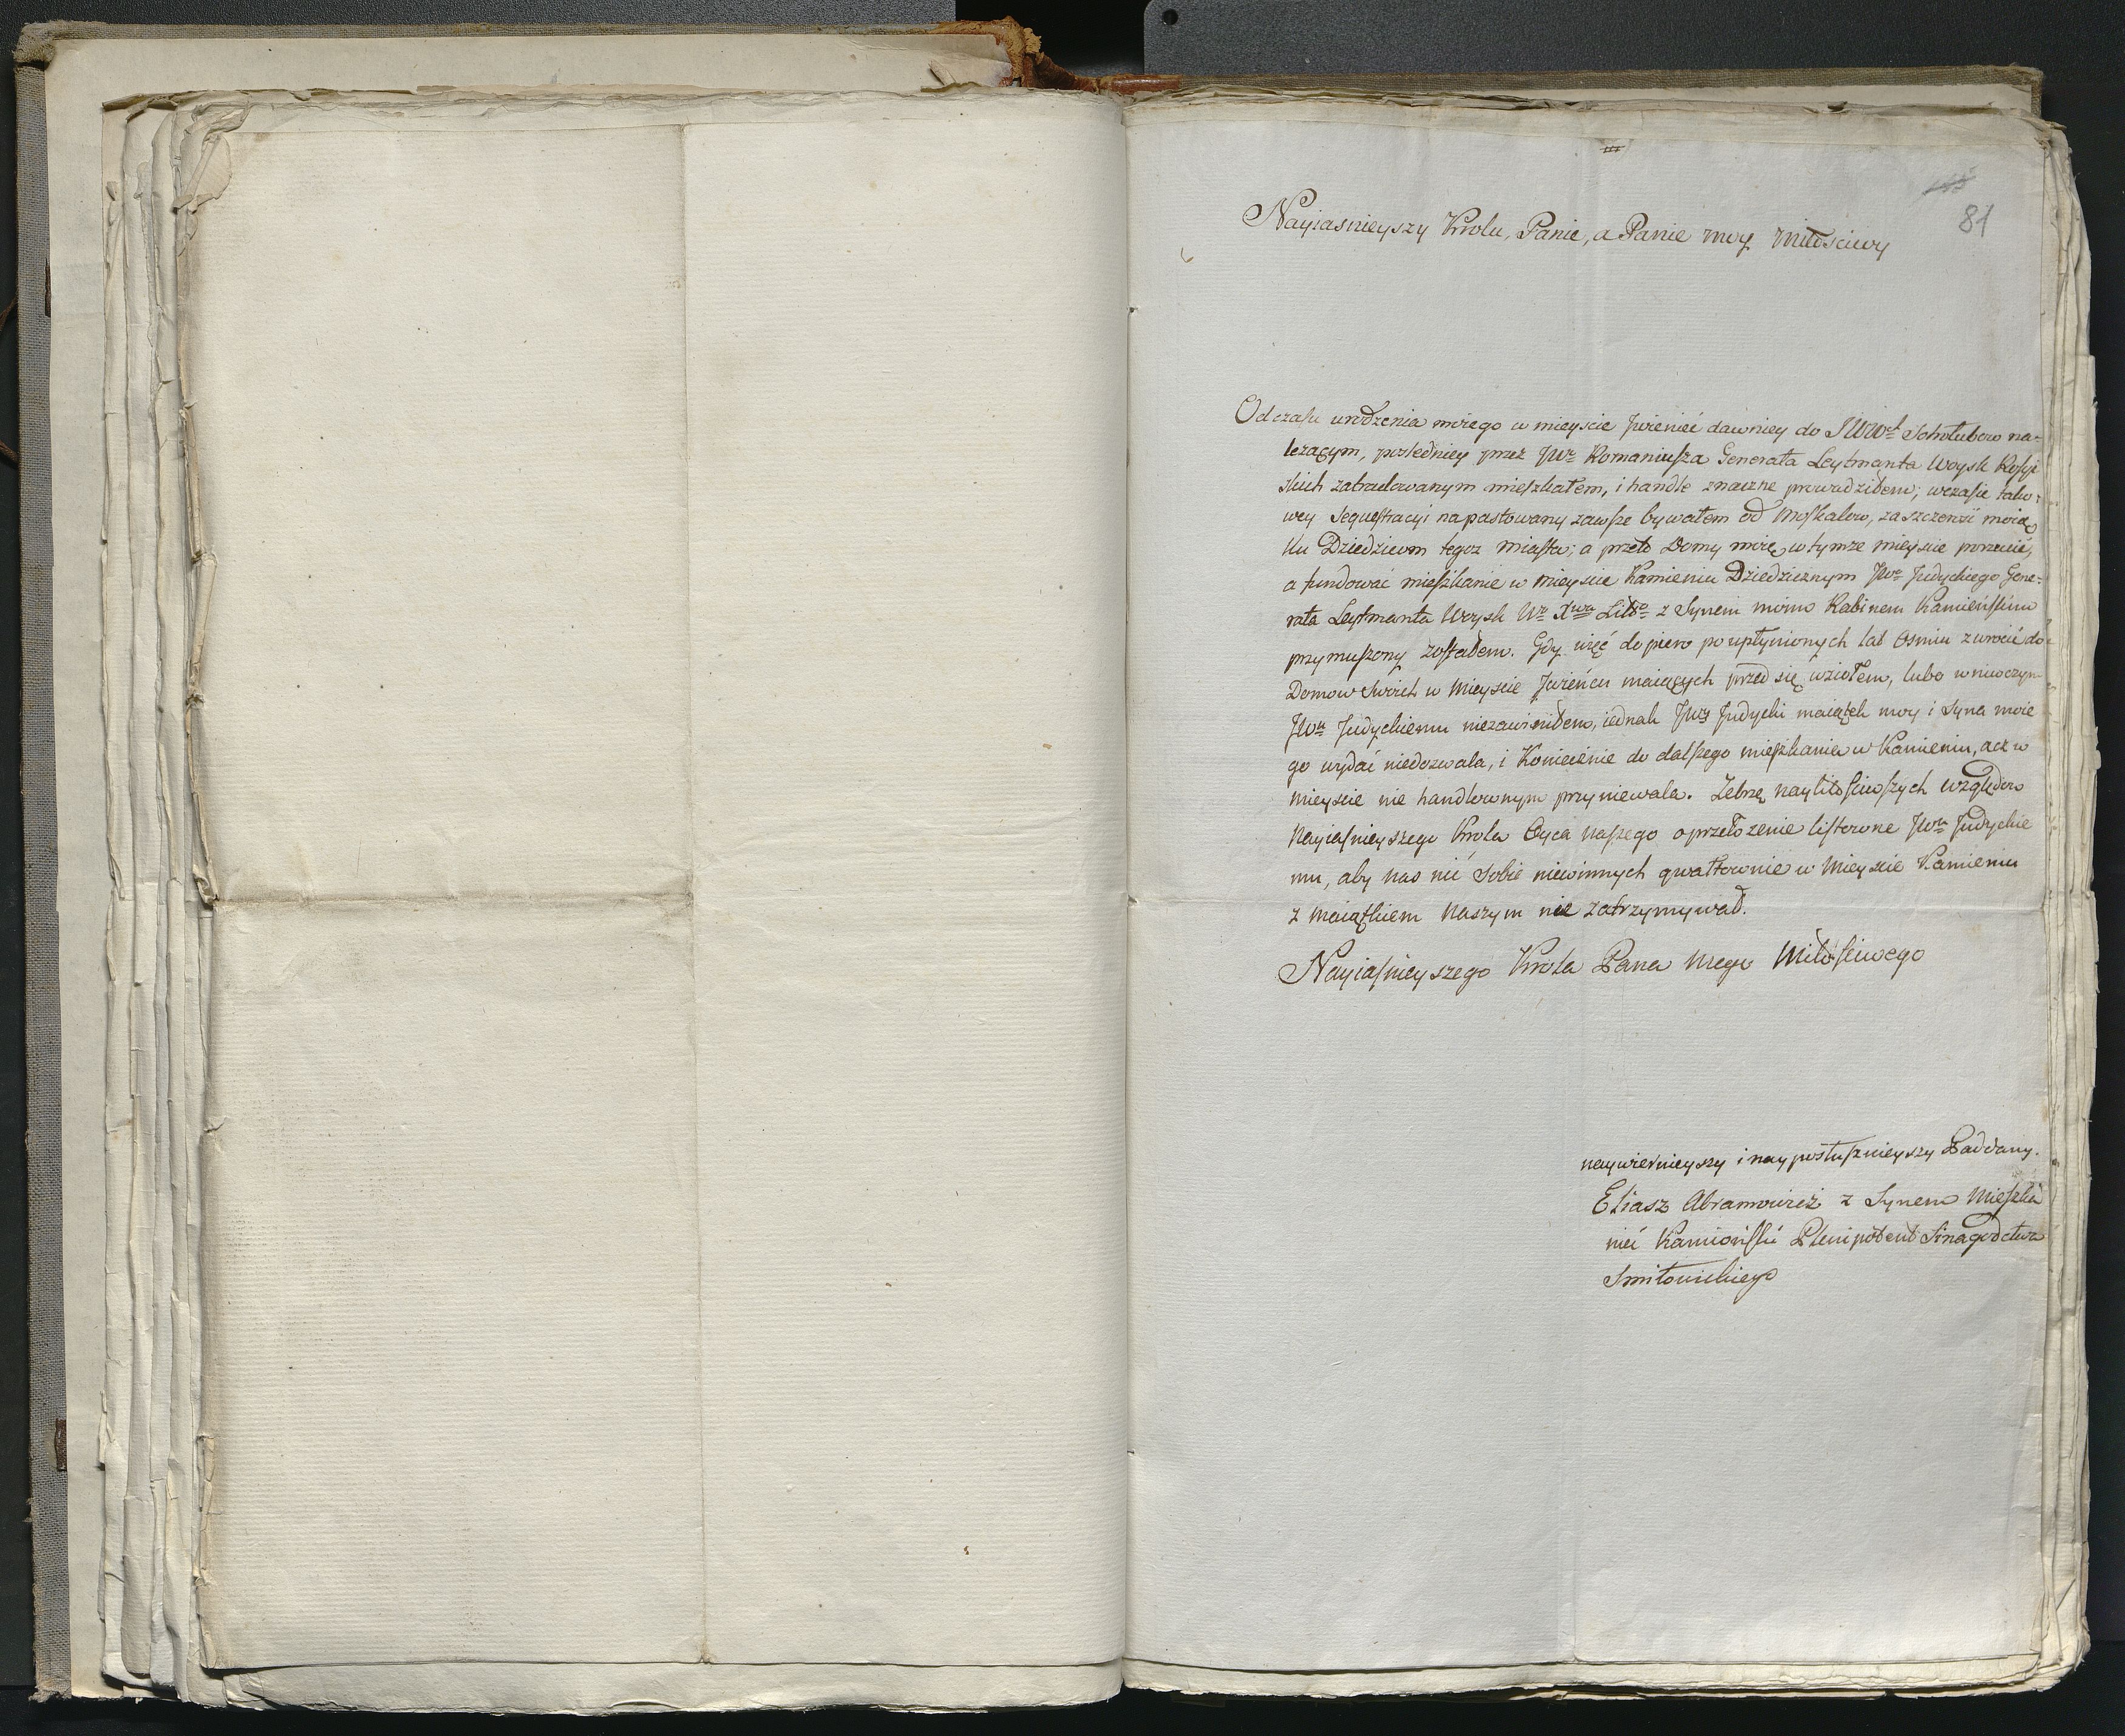 81
Nayiasnieyszy Krolu, Panie, a Panie moy Miłosciwy
Od czasu urodzenia moiego w mieyscie Iwieniéc dawniey do JWW Sołłohubow na=
lezącym, posledniey przez JWo Romaniusza Generała Leytmanta Woysk Rosyi
skich zatradowanym mieszkałem, i handle znaczne prowadziłem; wczasie tako:
wey Sequestracyi napastowany zawsze bywałem od Moskalow, za szczerość moią
ku Dziedzicom tegoz miasta; a przeto Domy moie w tymze mieyscie porzucić,
a fundować mieszkanie w mieyscie Kamieniu Dziedzicznym JWo Judyckiego Gene=
rała Leytmanta Woysk Wo Xwa Litgo z Synem moim Rabinem Kamieńskim
przymuszony zostałem. Gdy więc dopiero po upłynionych lat Osmiu zwrocić do
Domow Swoich w Mieyscie Iwieńcu maiących przed się wziołem, lubo w niwczym
JWu Judyckiemu niezawiniłem, iednak JWy Judycki maiątek moy i Syna moie
go wydać niedozwala, i Koniecznie do dalszego mieszkania w Kamieniu, acz w
mieyscie nie handlownym przyniewala. Zebrzę naylitościwszych względow
Nayiasnieyszego Krola Oyca naszego o przełozenie listowne JWu Judyckie
mu, aby nas nić sobie niewinnych gwałtownie w Mieyscie Kamieniu
z maiątkiem naszym nie zatrzymywał.
Nayiasnieyszego Krola Pana mego Miłosciwego
naywiernieyszy i nayposłusznieyszy Poddany.
Eliasz Abramowicz z Synem Mieszka
niec Kamioński Plenipotent Sinagostwa
Smiłowickiego